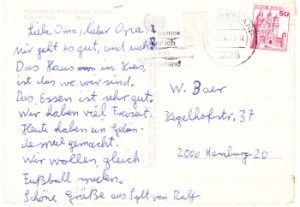 Liebe Oma, lieber Opa!
Mir geht es gut, und euch?
Das Haus im Kreis,
ist das wo wir sind.
Das Essen ist sehr gut.
Wir haben viel Freizeit.
Heute haben wir Gelän-
despiel gemacht.
Wir wollen gleich
Fußball spielen.
Schöne Grüße aus Sylt von Ralf
W. Baer
Kegelhofstr. 37
2000 Hamburg 20
228
50